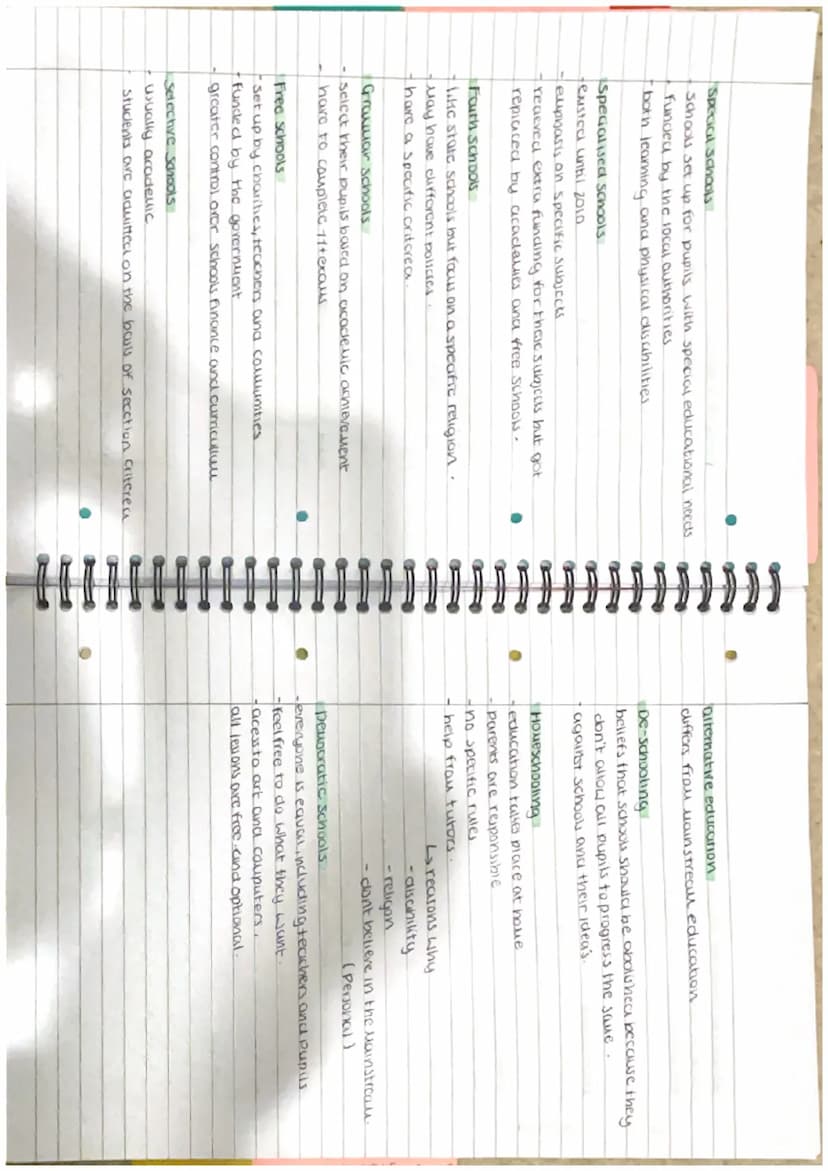 Special schools
- schools set up for pupils with special educational needs
- funded by the local authorities
- both learning and physical disabilities
Specialised schools
- existed until 2010
- emphasis on specific subjects
- recieved extra funding for these subjects but got
replaced by academies and free schools.
Faith schools
- like state schools but focus on a specific religion.
- may have different policies.
- have a specific criterea.
Grammar schools
- select their pupils based on academic achievement
- have to complete 11+ exams
Free schools
- set up by charities, teachers and communities
- funded by the government
- greater control over schools finance and curriculum
Selective schools
- usually academic
- students are admitted on the basis of section criterea
alternative education
differs from mainstream education
De-schooling
beliefs that schools should be abolished because they
don't allow all pupils to progress the same.
- against schools and their idea's.
Homeschooling
- education takes place at home
- parents are responsible
- no specific rules
- help from tutors.
↳ reasons why
- disability
- religon
- dont believe in the mainstream.
(personal)
Democratic schools
- everyone is equal, including teachers and pupils
- feel free to do what they want.
- acess to art and computers.
all lesons are free and optional.